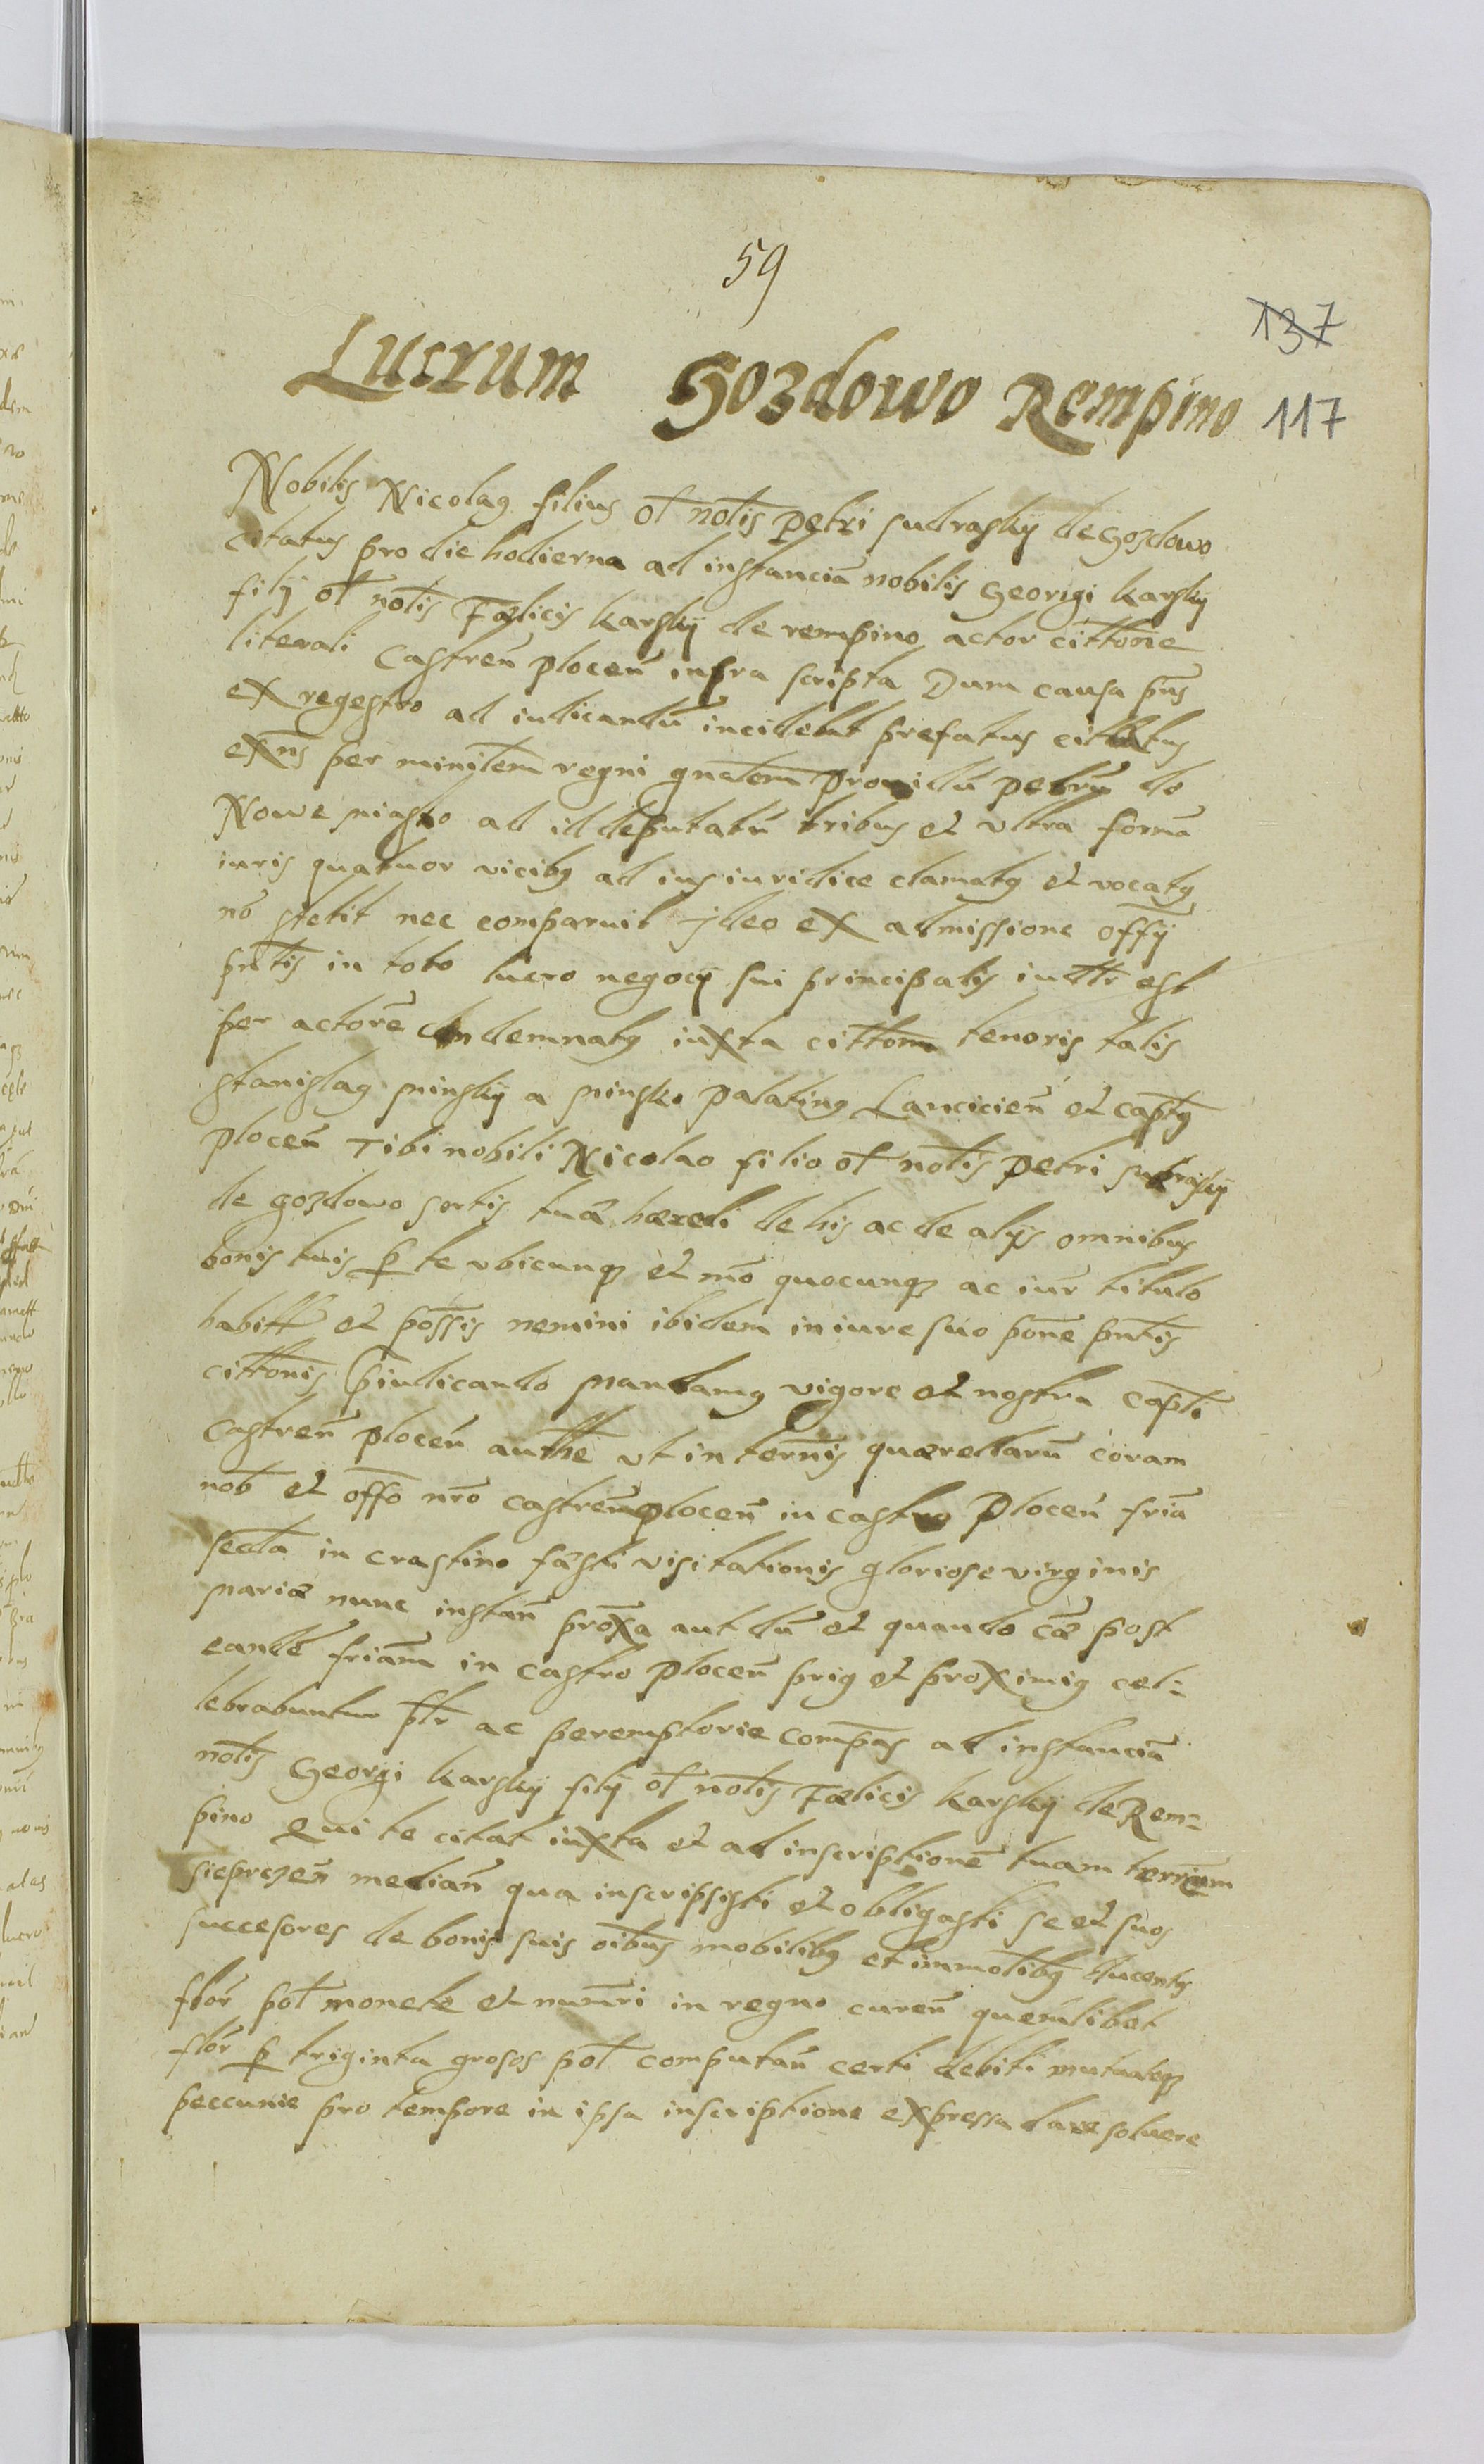 59
137
Lucrum Gozdowo Rempino 117
Nobilis Nicolaꝰ filius ol̄ notīs petri sudraskij de Gozdowo
citatus pro die hodierna ad instanciā nobilis Georigi karskij
filij ol̄ notīs Fælicis karskij de rempino actor cittōnē
literali Castreñ ploceñ infra scripta Dum causa pñs
ex regestro ad iudicandū incidebat prefatus citatus
exñs per minīlem regni gñalem providū petrū de
Nowe miasto ad id deputatū tribus et vltra formā
iuris quatuor vicibꝰ ad ius iuridice clamatꝰ et vocatꝰ
nō stetit nec comparuit jdeo ex admissione offij
pñtis in toto lucro negocij sui principalis iudtr est
per actorē condemnatꝰ iuxta cittōm tenoris talis
Stanislaꝰ minskij a minsko palatinꝰ Lancicieñ et captꝰ
ploceñ Tibi nobili Nicolao filio ol̄ notīs petri sudraskij
de gozdowo sortis tuæ hæredi de his ac de alijs omnibus
bonis tuis ꝑ te vbicunqȝ et mō quocunqȝ ac iur titulo
habitt et possīs nemini ibidem in iure suo pōne pñtis
cittōnis Pþiudicando mandamꝰ vigore et nostra capti
castreñ ploceñ autthe vt in termīs quærellarū coram
nob̄ et offo nr̄o castreñ ploceñ in castro Ploceñ friā
secda in crastino fæsti visitationis gloriose virginis
mariæ nunc instañ prox̄a aut dū et quando cæ post
eandē friām in castro Ploceñ priꝰ et proximiꝰ cel=
lebrabuntur pl̄r ac peremptorie compās ad instanciā
notīs Georgi karskij filij ol̄ notīs Fælicis karskij de Rem=
pino Qui te citat iuxta et ad inscriptionē tuam terrm̄
sieprczeñ mediañ qua inscripsisti et obligasti se et suos
succesores de bonis suis oībus mobilibꝰ et immotībꝰ ducentꝰ
flor pol̄ monete et numr̄i in regno cureñ quemlibet
flor ꝑ triginta grosos pol̄ computañ certi debiti mutuatqȝ
peccunie pro tempore in ipsa inscriptione expressa dare soluere